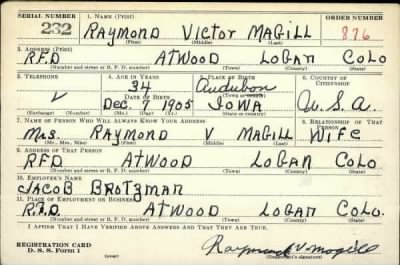 SERIAL NUMBER 1. NAME (Print) ORDER NUMBER
232 RAYMOND VICTOR MAGILL 876
(First) (Middle) (Last)
2. ADDRESS (Print)
RFD ATWOOD LOGAN COLO
(Number and street or R. F. D. number) (Town) (County) (State)
3. TELEPHONE 4. AGE IN YEARS 5. PLACE OF BIRTH 6. COUNTRY OF CITIZENSHIP
34 Audubon
DATE OF BIRTH (Town or county)
V Dec. 7 1905 IOWA U.S.A.
(Exchange) (Number) (Mo.) (Day) (Yr.) (State or country)
7. NAME OF PERSON WHO WILL ALWAYS KNOW YOUR ADDRESS 8. RELATIONSHIP OF THAT PERSON
Mrs. RAYMOND V MAGILL WIFE
(Mr., Mrs., Miss) (First) (Middle) (Last)
9. ADDRESS OF THAT PERSON
RFD ATWOOD LOGAN COLO.
(Number and street or R. F. D. number) (Town) (County) (State)
10. EMPLOYER'S NAME
JACOB BROTZMAN
11. PLACE OF EMPLOYMENT OR BUSINESS
R.F.D ATWOOD LOGAN COLO.
(Number and street or R. F. D. number) (Town) (County) (State)
I AFFIRM THAT I HAVE VERIFIED ABOVE ANSWERS AND THAT THEY ARE TRUE.
REGISTRATION CARD
D. S. S. Form 1 Raymond V. Magill
(Registrant's signature)